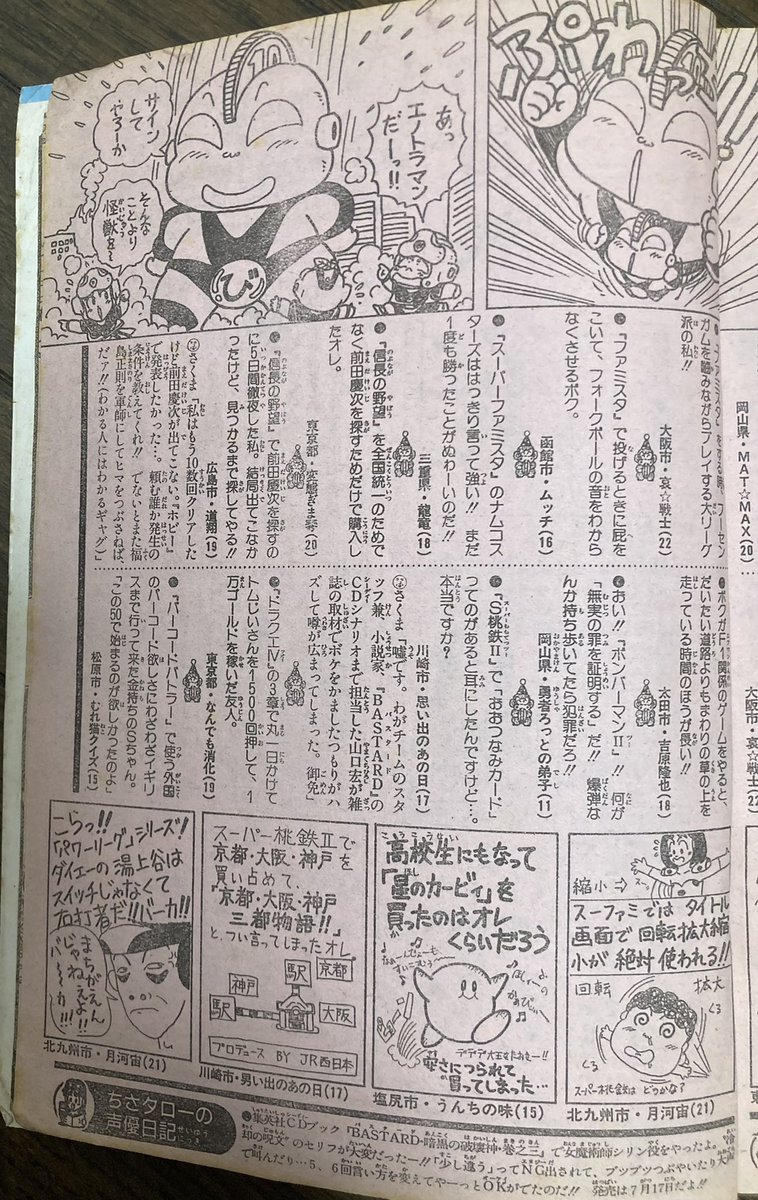 ぷわっ!!
あっ
エノトラマン
だーっ!!
サイン
して
やろーか
そんな
ことより
怪獣を〜
び
岡山県・MAT☆MAX(20)
●『ファミスタ』をする時、フーセン
ガムを噛みながらプレイする大リーグ
派の私!!
大阪市・哀☆戦士(22)
●『ファミスタ』で投げるときに屁を
こいて、フォークボールの音をわから
なくさせるボク。
函館市・ムッチ(16)
●『スーパーファミスタ』のナムコス
ターズははっきり言って強い!! まだ
1度も勝ったことがぬわーいのだ!!
三重県・龍竜(18)
●『信長の野望』を全国統一のためで
なく前田慶次を探すためだけで購入し
たオレ。
東京都・変態ぎま零(20)
●『信長の野望』で前田慶次を探すの
に5日間徹夜した私。結局出てこなか
ったけど、見つかるまで探してやる!!
広島市・道翔(19)
さくま「私はもう10数回クリアした
けど前田慶次が出てこない。『ホビー』
で発表したかった…。頼む誰か発生の
条件を教えてくれ!! でないとまた福
島正則を軍師にしてヒマをつぶさねば、
だァ!!(わかる人にはわかるギャグ)」
大阪市・哀☆戦士(22)
●ボクがF1関係のゲームをやると、
だいたい道路よりもまわりの草の上を
走っている時間のほうが長い!!
太田市・吉原隆也(18)
●おい!!『ボンバーマンⅡ』!! 何が
「無実の罪を証明する」だ!! 爆弾な
んか持ち歩いてたら犯罪だろ!!
岡山県・勇者ろっとの弟子(11)
●『S桃鉄Ⅱ』で「おおつなみカード」
ってのがあると耳にしたんですけど…。
本当ですか?
川崎市・思い出のあの日(17)
さくま「嘘です。わがチームのスタ
ッフ兼、小説家、『BASTARD』の
CDシナリオまで担当した山口宏が雑
誌の取材でボケをかましたつもりがハ
ズして噂が広まってしまった。御免」
●『ドラクエⅣ』の3章で丸一日かけて
トムじいさんを1500回押して、1
万ゴールドを稼いだ友人。
東京都・なんでも消化(19)
●『バーコードバトラー』で使う外国
のバーコード欲しさにわざわざイギリ
スまで行って来た金持ちのSちゃん。
「この50で始まるのが欲しかったのよ」
松原市・むれ猫クイズ(15)
縮小⇨
スーファミでは タイトル
画面で 回転・拡大・縮
小が 絶対 使われる!!
回転
拡大
くる
くる
スーパー桃鉄は どうかな?
北九州市・月河宙(21)
高校生にもなって
「星のカービィ」を
買ったのはオレ
くらいだろう
デデデ大王をたおせー!!
安さにつられて
買ってしまった…
塩尻市・うんちの味(15)
スーパー桃鉄Ⅱで
京都・大阪・神戸を
買い占めて、
「京都・大阪・神戸
三都物語!!」
と、つい言ってしまったオレ。
駅
京都
神戸
駅
大阪
プロデュース BY JR西日本
川崎市・男い出のあの日(17)
こらっ!!
「パワーリーグ」シリーズ!
ダイエーの 湯上谷は
スイッチじゃなくて
右打者だ!!バーカ!!
まちがえん
じゃねえよ!!
バ〜カ!!!
北九州市・月河宙(21)
ちさタローの
声優日記
●集英社CDブック『BASTARD-暗黒の破壊神・巻之三』で女魔術師シリン役をやったよ。"冷
却の呪文"のセリフが大変だったー!!「少し違う」ってNG出されて、ブツブツつぶやいたり大声
で叫んだり…5、6回言い方を変えてやーっとOKがでたのだ!! 発売は7月17日だよ!!